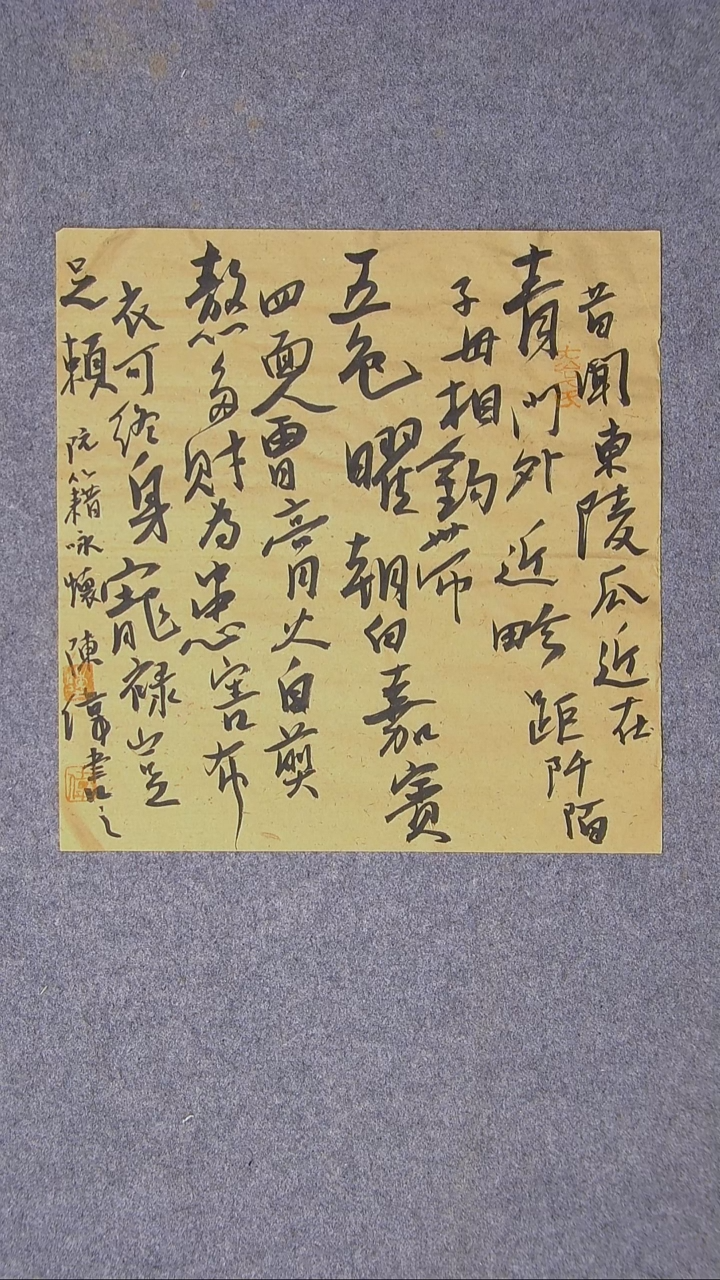 昔聞東陵瓜近在
青門外近畛距阡陌
子母相鈎帶
五色曜朝日嘉賓
四面會膏火自煎
熬多財為患害布
衣可終身寵祿豈
足賴 阮籍咏懷 陳 書之